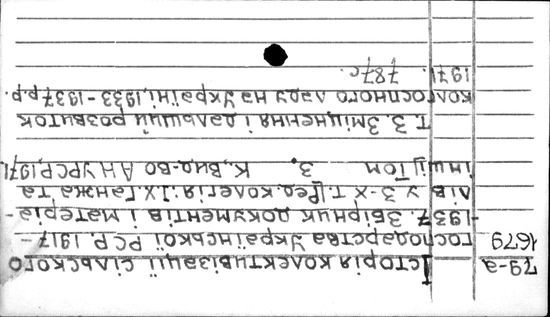 79-а Історія колективізації сільского
1679 господарства Української РСР. 1917-
-1937. Збірник документів і матеріа-
лів у 3-х т. [Ред. колегія: І.Х. Ганжа та
інші] Том 3. К., Вид-во АН УРСР, 1971
Т. 3. Зміцнення і дальший розвиток
колгоспного ладу на Україні, 1933-1937 р.р.
1971. 787с.